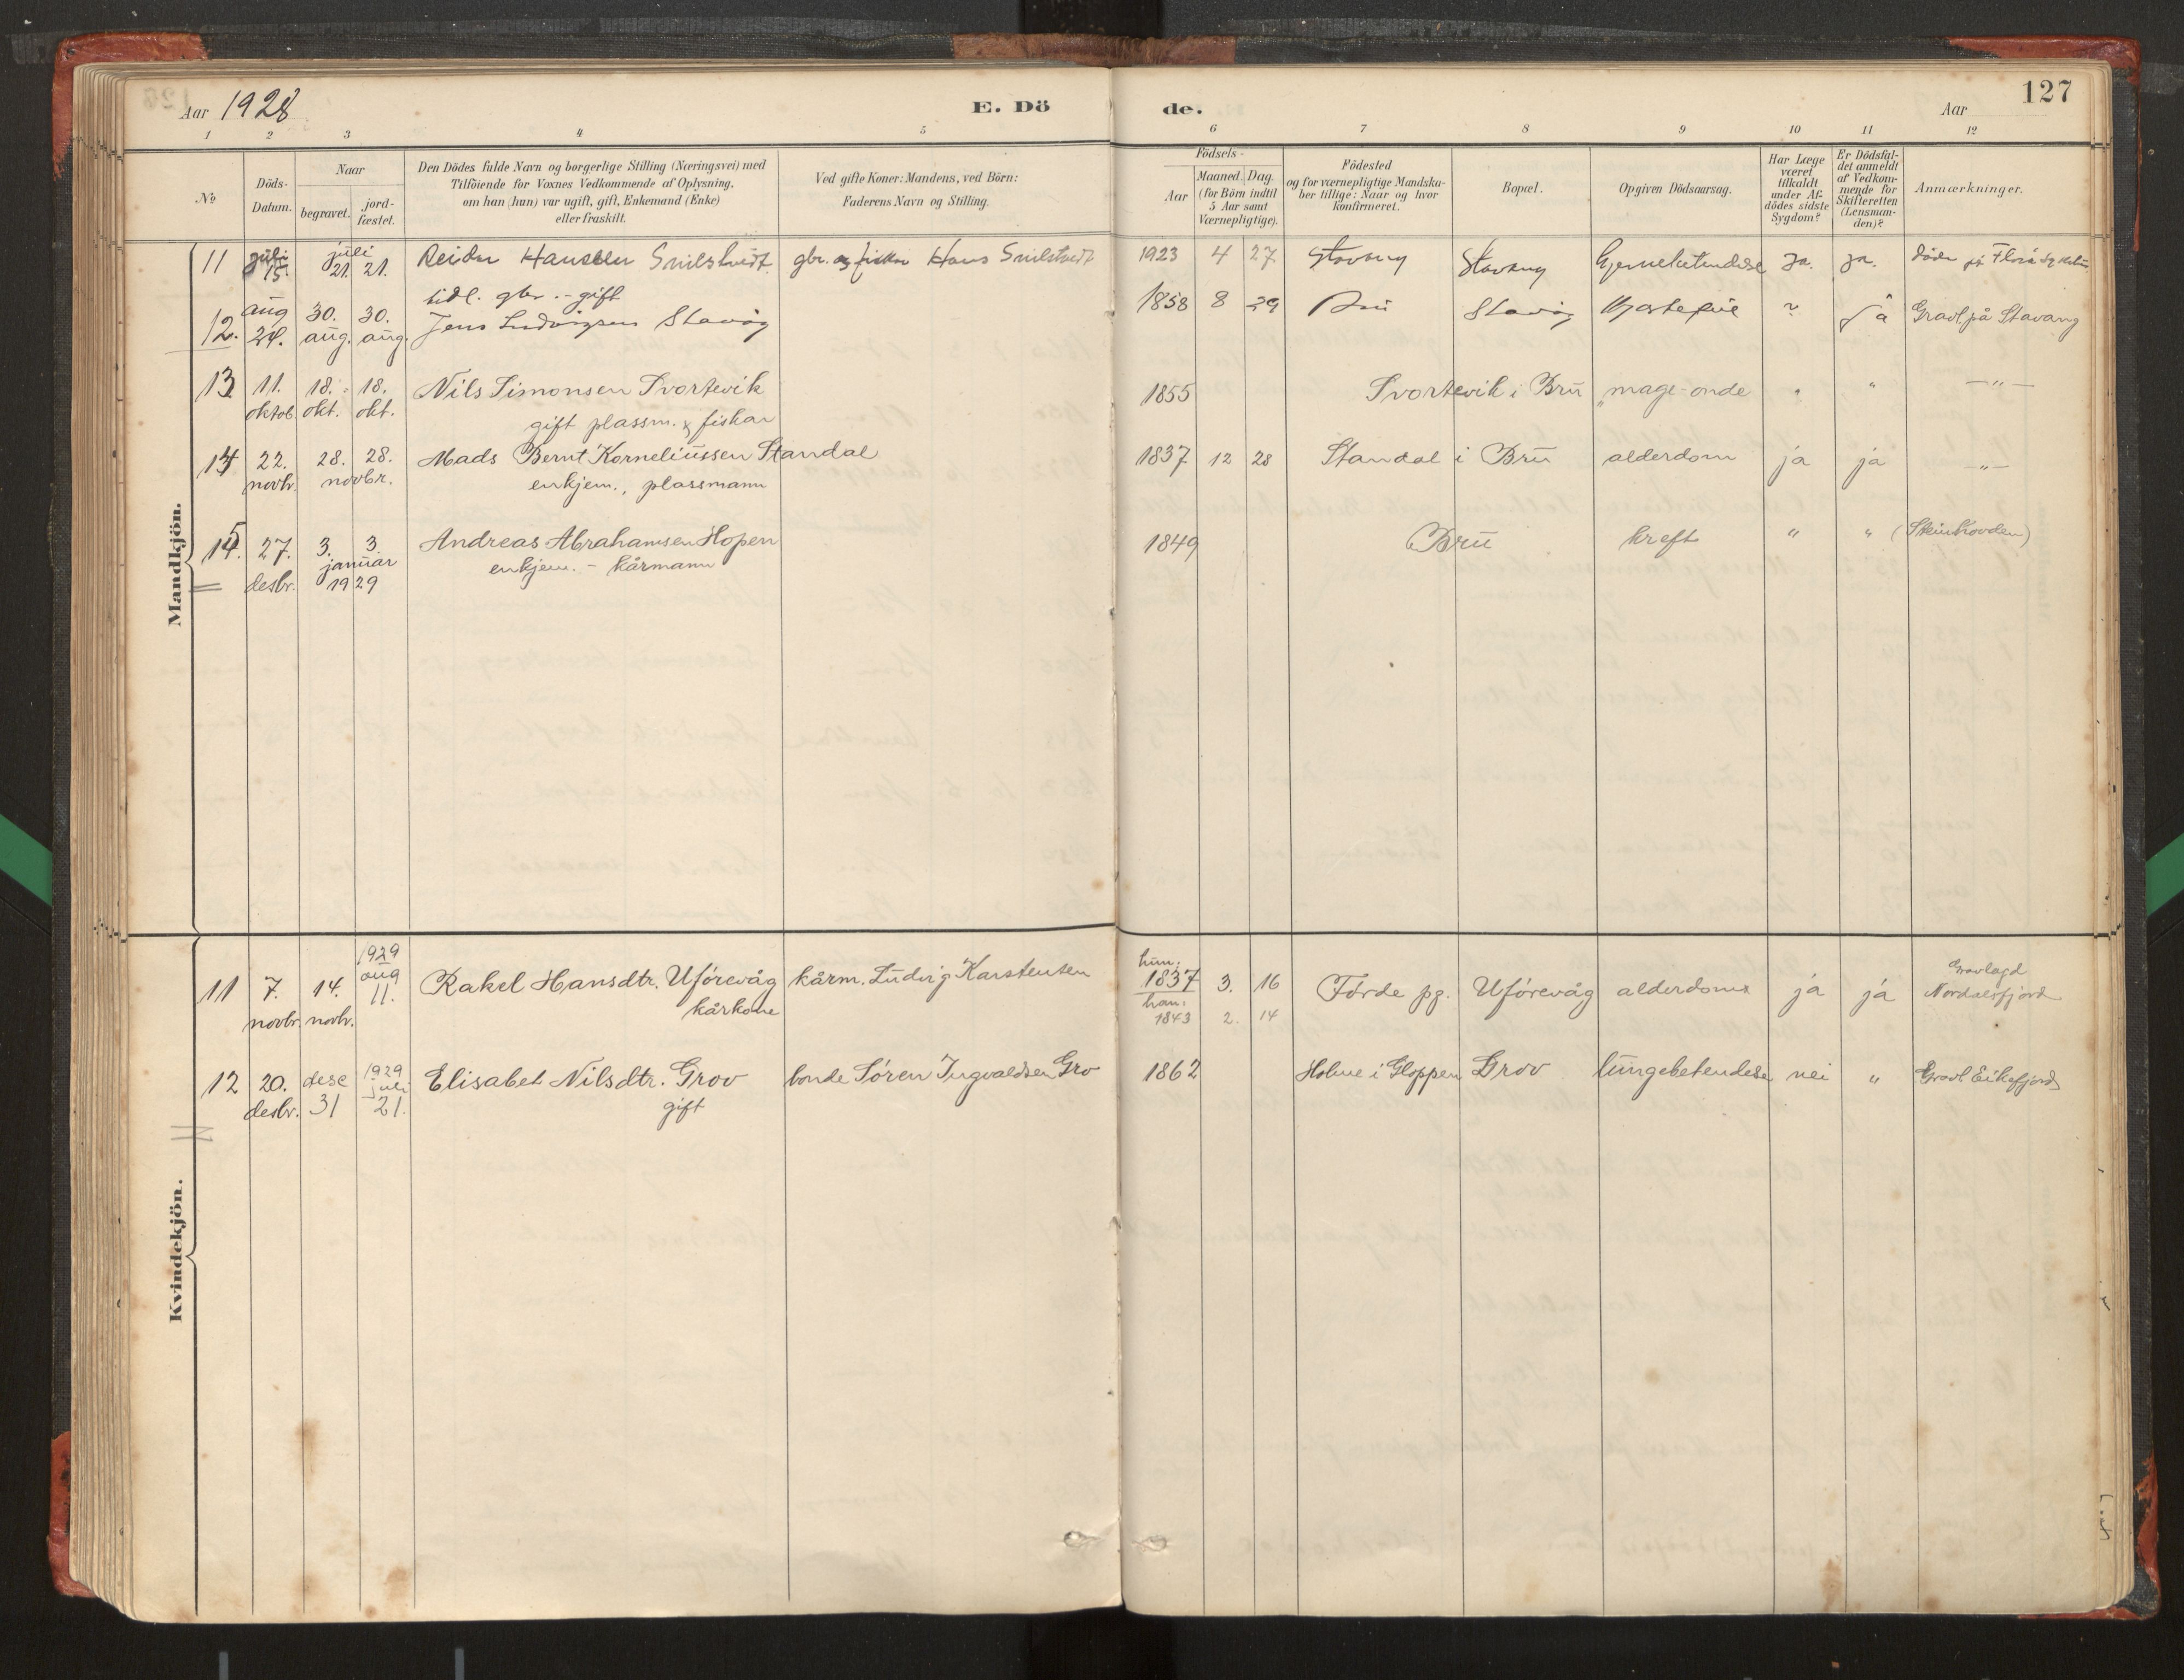 Aar 1928 E. Dö de. Aar 127
1 2 3 4 5 6 7 8 9 10 11 12
No
Döds-
Datum.
Naar
begravet.
jord-
fæstet.
Den Dödes fulde Navn og borgerlige Stilling (Næringsvei) med
Tilföiende for Voxnes Vedkommende af Oplysning,
om han (hun) var ugift, gift, Enkemand (Enke)
eller fraskilt.
Ved gifte Koner: Mandens, ved Börn:
Faderens Navn og Stilling.
Födsels-
Aar
Maaned. Dag.
(for Börn indtil
5 Aar samt
Værnepligtige).
Födested
og for værnepligtige Mandska-
ber tillige: Naar og hvor
konfirmeret.
Bopæl.
Opgiven Dödsaarsag.
Har Læge
været
tilkaldt
under Af-
dödes sidste
Sygdom?
Er Dödsfal-
det anmeldt
af Vedkom-
mende for
Skifteretten
(Lensman-
den)?
Anmærkninger.
Mandkjön.
11 juli 15. juli 21. 21. Reidar Hanssen Smilstveidt gbr. og fisker Hans Smilstveidt 1923 4 27 Stavang Stavang Hjernebetendelse Ja. ja. Döde på Florö
tidl. gbr. - gift
12. aug 30. 30. Jens Ludvigsen Stavöy 1858 8 29 Bru Stavöy Hjartefeil " Ja Gravl. på Stavang
24. aug. aug.
13 11. 18. 18. Nils Simonsen Svortevik 1855 Svortevik i Bru mage-onde " " —"—
oktob. okt. okt. gift plassm. & fiskar
14 22. 28. 28. Mads Bernt Korneliussen Standal 1837 12 28 Standal i Bru alderdom ja ja —"—
novbr. novbr. enkjem., plassmann
15. 27. 3. 3. Andreas Abrahamsen Hopen 1849 Bru kreft " " (Steinhovden)
desbr. januar 1929 enkjem. - kårmann
Kvindekjön.
1929
aug
11 7. 14. 11. Rakel Hansdtr. Uförevåg kårm. Ludvig Karstensen hun: 1837 3. 16 Förde pg. Uförevåg alderdoms ja ja Gravlagd
Nordalsfjord
novbr. novbr. kårkone han: 1843 2. 14
1929
juli
12 20. dese Elisabet Nilsdtr. Grov bonde Sören Ingvaldsen Gro 1862 Holme i Gloppen Grov lungebetendelse nei " Gravl Eikefjord
desbr. 31 21. gift